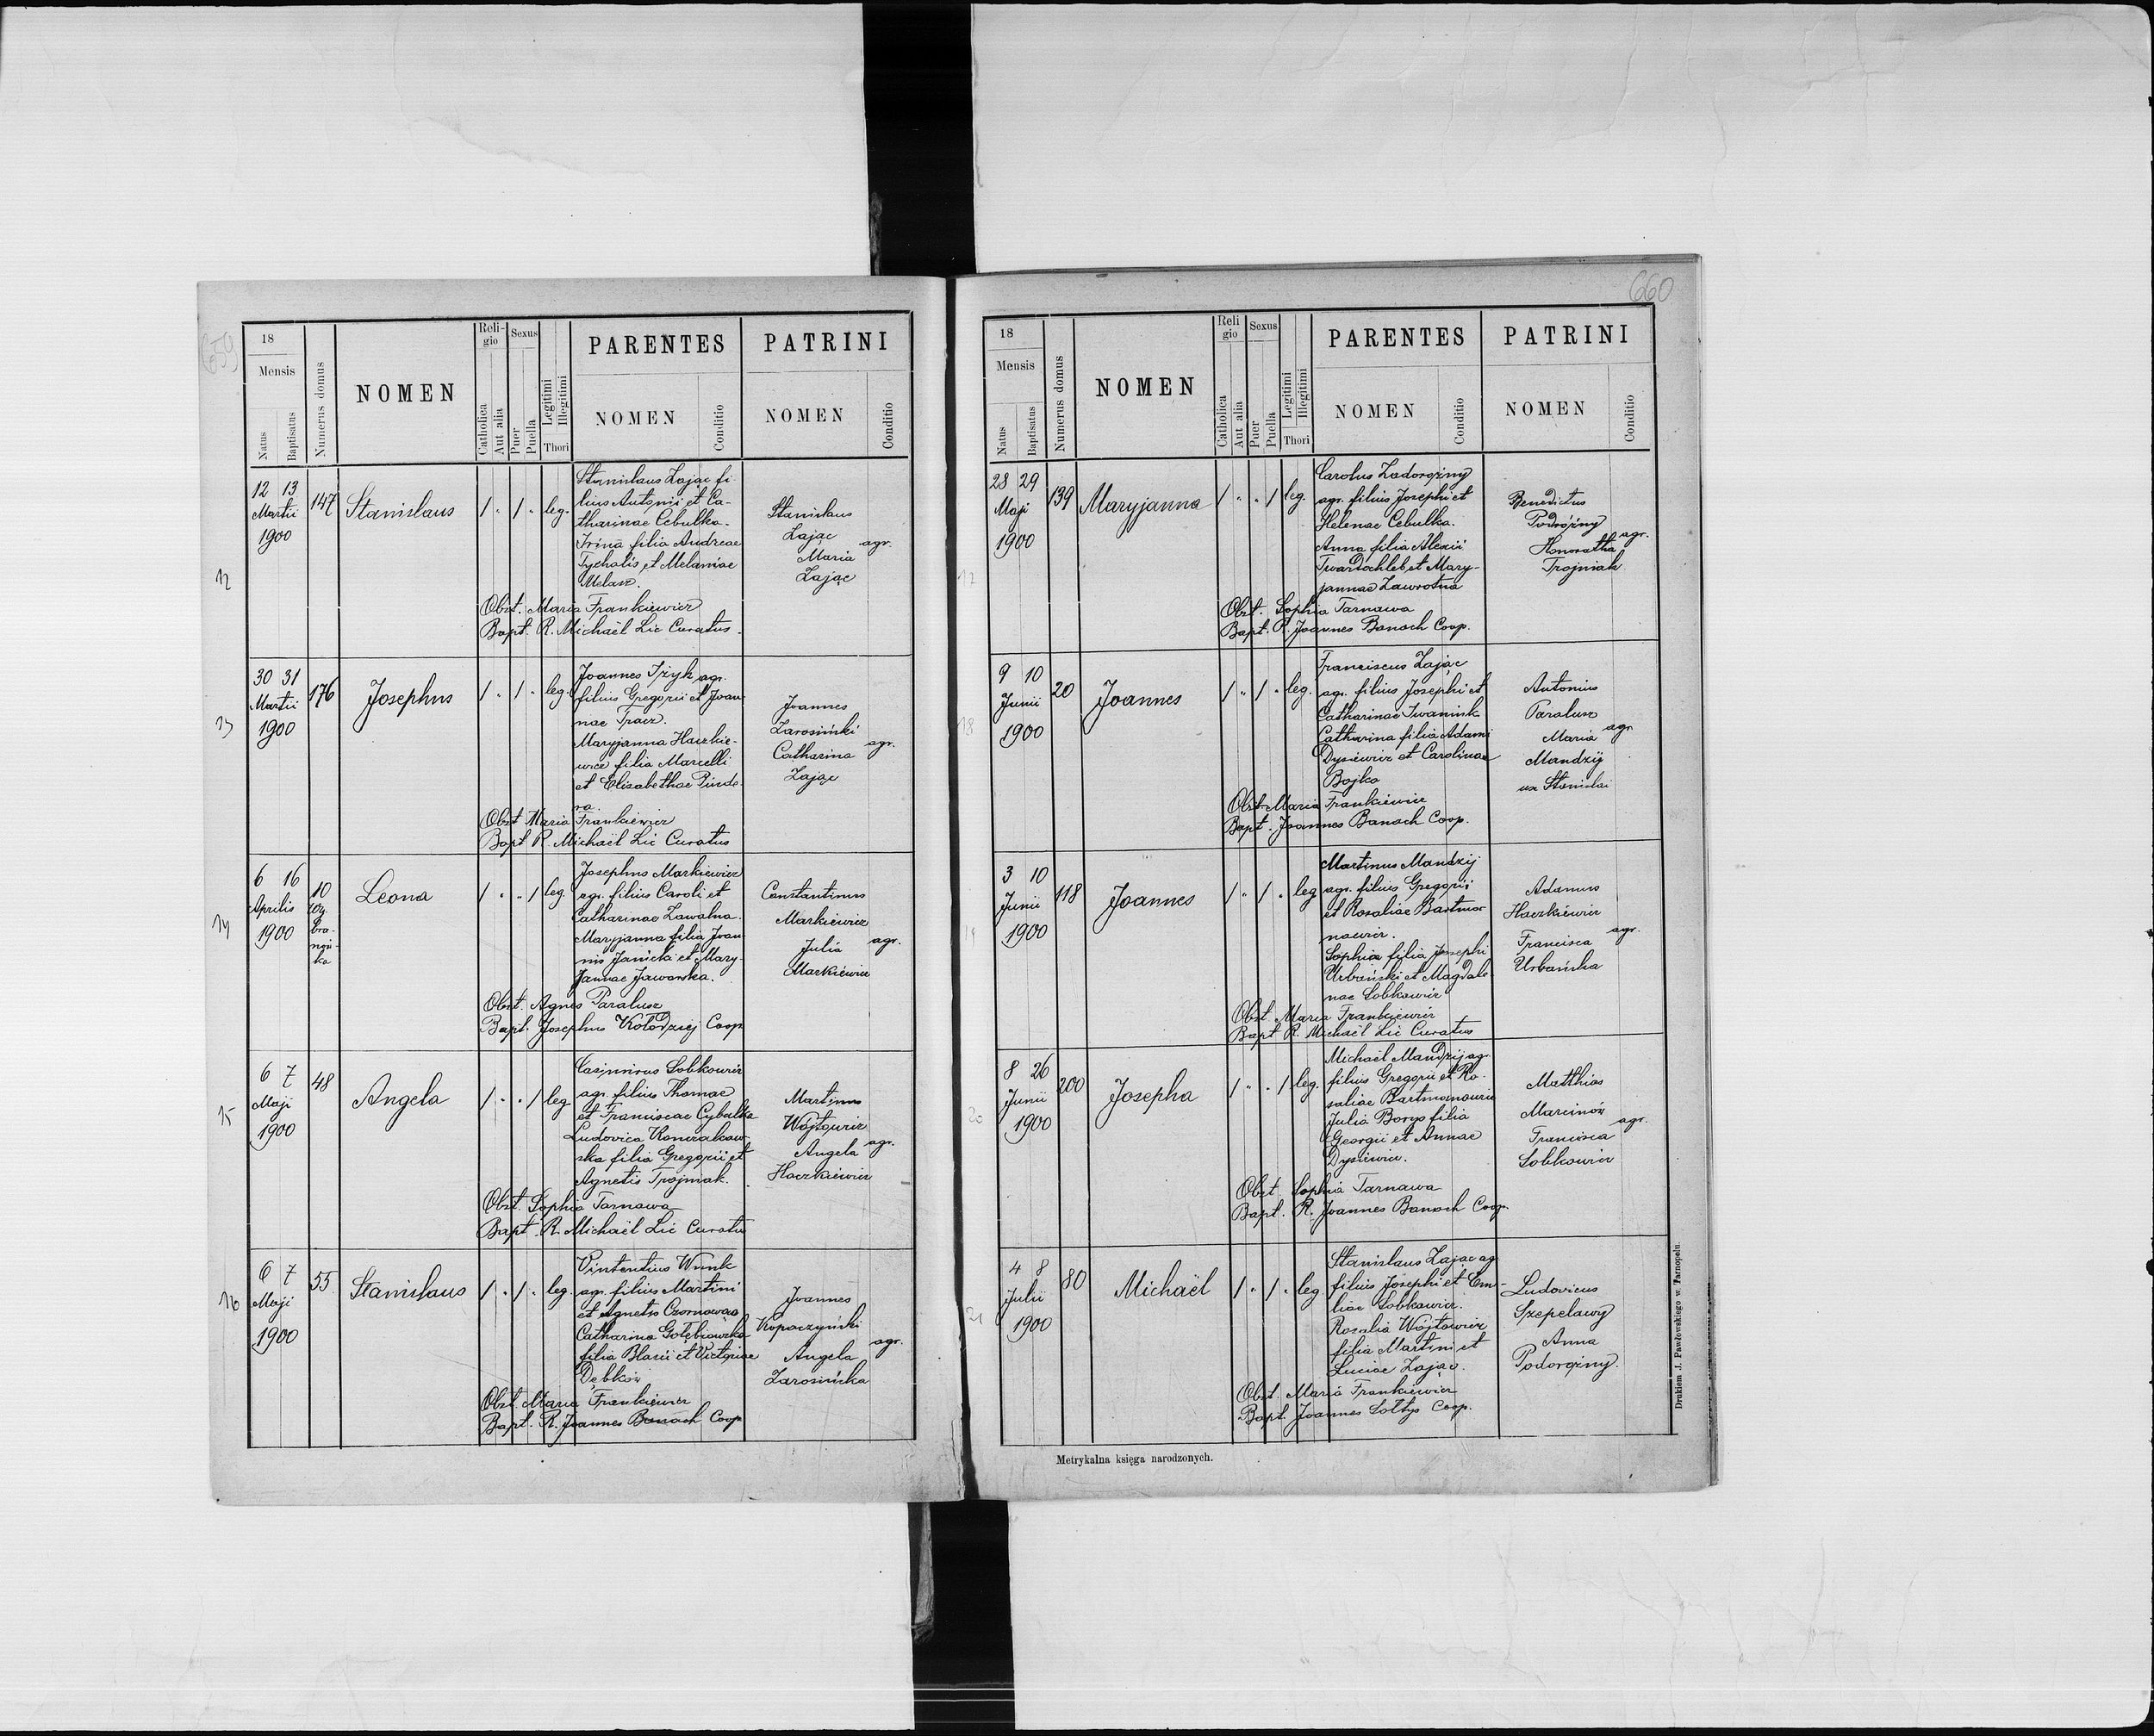 659
18
Mensis
Natus
Baptisatus
Numerus domus
NOMEN
Reli-
gio
Catholica
Aut alia
Sexus
Puer
Puella
Legitimi
Illegitimi
Thori
PARENTES
NOMEN
Conditio
PATRINI
NOMEN
Conditio
12
12 13
Martii
1900
147
Stanislaus
/ " / " leg.
Stanislaus Zając fi-
lius Antonii et Ca-
tharinae Cebulka.
Irina filia Andreae
Tycholis et Melaniae
Melan.
Stanislaus
Zając
agr.
Maria
Zając
Obst. Maria Frankiewicz
Bapt. R. Michaël Lic Curatus.
13
30 31
Martii
1900
176
Josephus
/ " / " leg.
Joannes Iżyk agr.
filius Gregorii et Joan-
nae Tracz.
Maryjanna Haczkie-
wicz filia Marcelli
et Elisabethae Pinde-
ra.
Joannes
Zarosiński
agr.
Catharina
Zając
Obst Maria Frankiewicz
Bapt R. Michaël Lic Curatus
14
6 16
Aprilis
1900
10
Leona
/ " " / leg.
Josephus Markiewicz
agr. filius Caroli et
Catharinae Zawalna.
Maryjanna filia Joan-
nis Janicki et Mary-
jannae Jaworska.
Constantinus
Markiewicz
agr.
Julia
Markiewicz
Obst. Agnes Paralusz
Bapt. Josephus Kołodziej Coop
15
6 7
Maji
1900
48
Angela
/ " " / leg
Casimirus Sobkowicz
agr. filius Thomae
et Franciscae Cybulka
Ludovica Konczakow-
ska filia Gregorii et
Agnetis Trojniak.
Martinus
Wójtowicz
Angela agr.
Haczkiewicz
Obst. Sophia Tarnawa
Bapt. R. Michaël Lic Curatus
16
6 7
Maji
1900
55
Stanislaus
/ " / " leg.
Vintentius Wnuk
agr. filius Martini
et Agnetis Czornowąs
Catharina Gołębiowska
filia Blasii et Victoriae
Dębków
Joannes
Kopaczyński
agr.
Angela
Zarosińska
Obst. Maria Frankiewicz
Bapt. R. Joannes Banach Coop
660
18
Mensis
Natus
Baptisatus
Numerus domus
NOMEN
Reli
gio
Catholica
Aut alia
Sexus
Puer
Puella
Legitimi
Illegitimi
Thori
PARENTES
NOMEN
Conditio
PATRINI
NOMEN
Conditio
17
28 29
Maji
1900
139
Maryjanna
/ " " / leg.
Carolus Zadorożny
agr. filius Josephi et
Helenae Cebulka.
Anna filia Alexii
Twardochleb et Mary-
jannae Zawrotna
Benedictus
Podróżny
agr.
Honoratha
Trojniak
Obst. Sophia Tarnawa
Bapt. R. Joannes Banach Coop.
18
9 10
Junii
1900
20
Joannes
/ " / " leg.
Franciscus Zając
agr. filius Josephi et
Catharinae Iwaniuk
Catharina filia Adami
Dysiewicz et Carolinae
Bojko
Antonius
Paralusz
agr
Maria
Mandzij
ux Stanislai
Obst Maria Frankiewicz
Bapt. Joannes Banach Coop.
19
3 10
Junii
1900
118
Joannes
/ " / " leg
Martinus Mandzij
agr. filius Gregorii
et Rosaliae Bartma-
nowicz.
Sophia filia Josephi
Urbański et Magdale
nae Sobkowicz
Adamus
Haczkiewicz
agr.
Francisca
Urbańska
Obst Maria Frankiewicz
Bapt R. Michaël Lic Curatus
20
8 26
Junii
1900
200
Josepha
/ " " / leg.
Michaël Mandzij agr.
filius Gregorii et Ro-
saliae Bartmanowicz
Julia Borys filia
Georgii et Annae
Dysiewicz.
Matthias
Marcinów
agr.
Francisca
Sobkowicz
Obst Sophia Tarnawa
Bapt. R. Joannes Banach Coop.
21
4 8
Julii
1900
80
Michaël
/ " / " leg
Stanislaus Zając ag
filius Josephi et Em-
liae Sobkowicz.
Rosalia Wójtowicz
filia Martini et
Luciae Zając.
Ludovicus
Szepelawy
Anna
Podorożny.
Obst. Maria Frankiewicz
Bapt. Joannes Sołtys Coop.
Metrykalna księga narodzonych.
Drukiem J. Pawłowskiego w Tarnopolu.